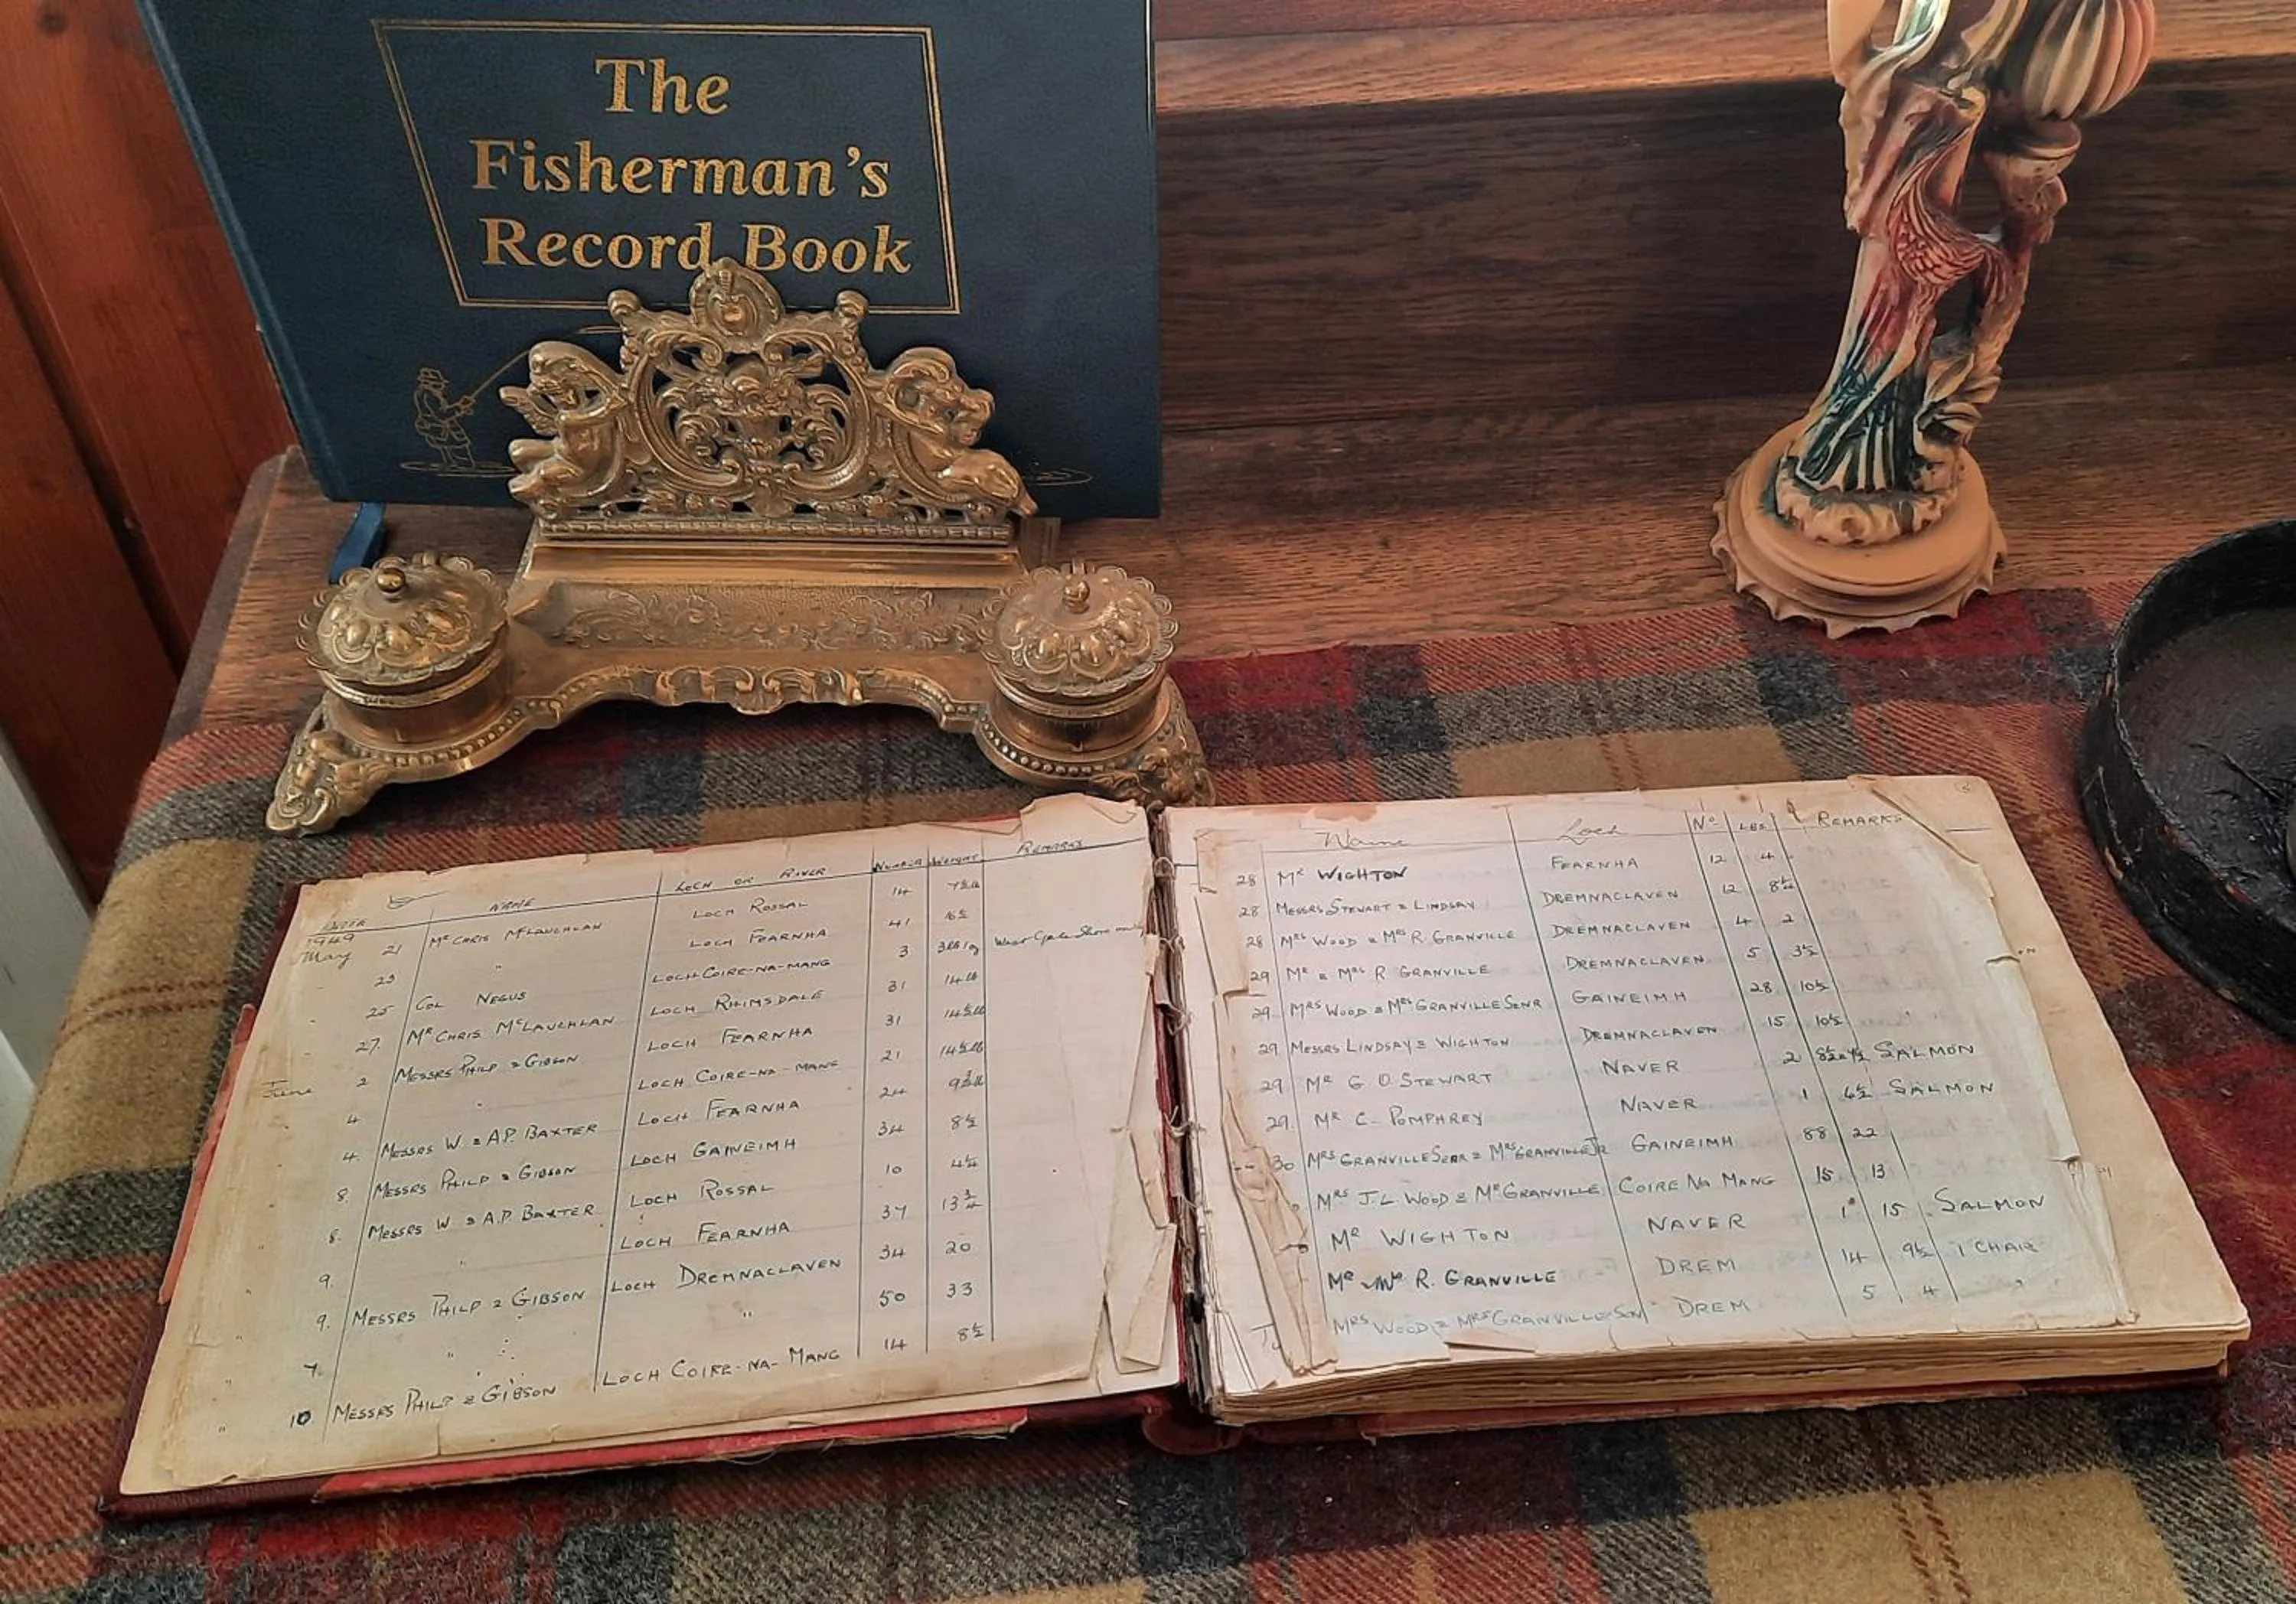 The
Fisherman's
Record Book
DATE NAME LOCH OR RIVER NUMBER WEIGHT REMARKS
1949
May 21 Mr CHRIS McLAUCHLAN LOCH ROSSAL 14 7½lb
" 23 " LOCH FEARNHA 41 16½
" 25 COL NEGUS LOCH COIRE-NA-MANG 3 3lb
" 27. Mr CHRIS McLAUCHLAN LOCH RHIMSDALE 31 14lb
June 2 MESSRS PHILP & GIBSON LOCH FEARNHA 31 14½lb
4 " LOCH COIRE-NA-MANG 21 14½lb
4. MESSRS W & A.P. BAXTER LOCH FEARNHA 24 9¾lb
8. MESSRS PHILP & GIBSON LOCH GAINEIMH 34 8½
8. MESSRS W & A.P. BAXTER LOCH ROSSAL 10 4¼
" 9. " LOCH FEARNHA 37 13¾
" 9. MESSRS PHILP & GIBSON LOCH DREMNACLAVEN 34 20
" 7. " " 50 33
" 10 MESSRS PHILP & GIBSON LOCH COIRE-NA-MANG 14 8½
Name Loch No. LBS. REMARKS
28 Mr WIGHTON FEARNHA 12 4
28 MESSRS STEWART & LINDSAY DREMNACLAVEN 12 8¼
28 MRS WOOD & MRS R. GRANVILLE DREMNACLAVEN 4 2
29 MR & MRS R GRANVILLE DREMNACLAVEN 5 3½
29. MRS WOOD & MRS GRANVILLE SENR GAINEIMH 28 10½
29 MESSRS LINDSAY & WIGHTON DREMNACLAVEN 15 10½
29 MR G. O. STEWART NAVER 2 SALMON
29. MR C. POMPHREY NAVER 1 6½ SALMON
30 MRS GRANVILLE SENR & MRS GRANVILLE JR GAINEIMH 88 22
MRS J.L. WOOD & MR GRANVILLE COIRE NA MANG 15 13
MR WIGHTON NAVER 1 15 SALMON
MR & MRS R. GRANVILLE DREM 14 9½ 1 CHAR
MRS WOOD & MRS GRANVILLE SEN DREM 5 4